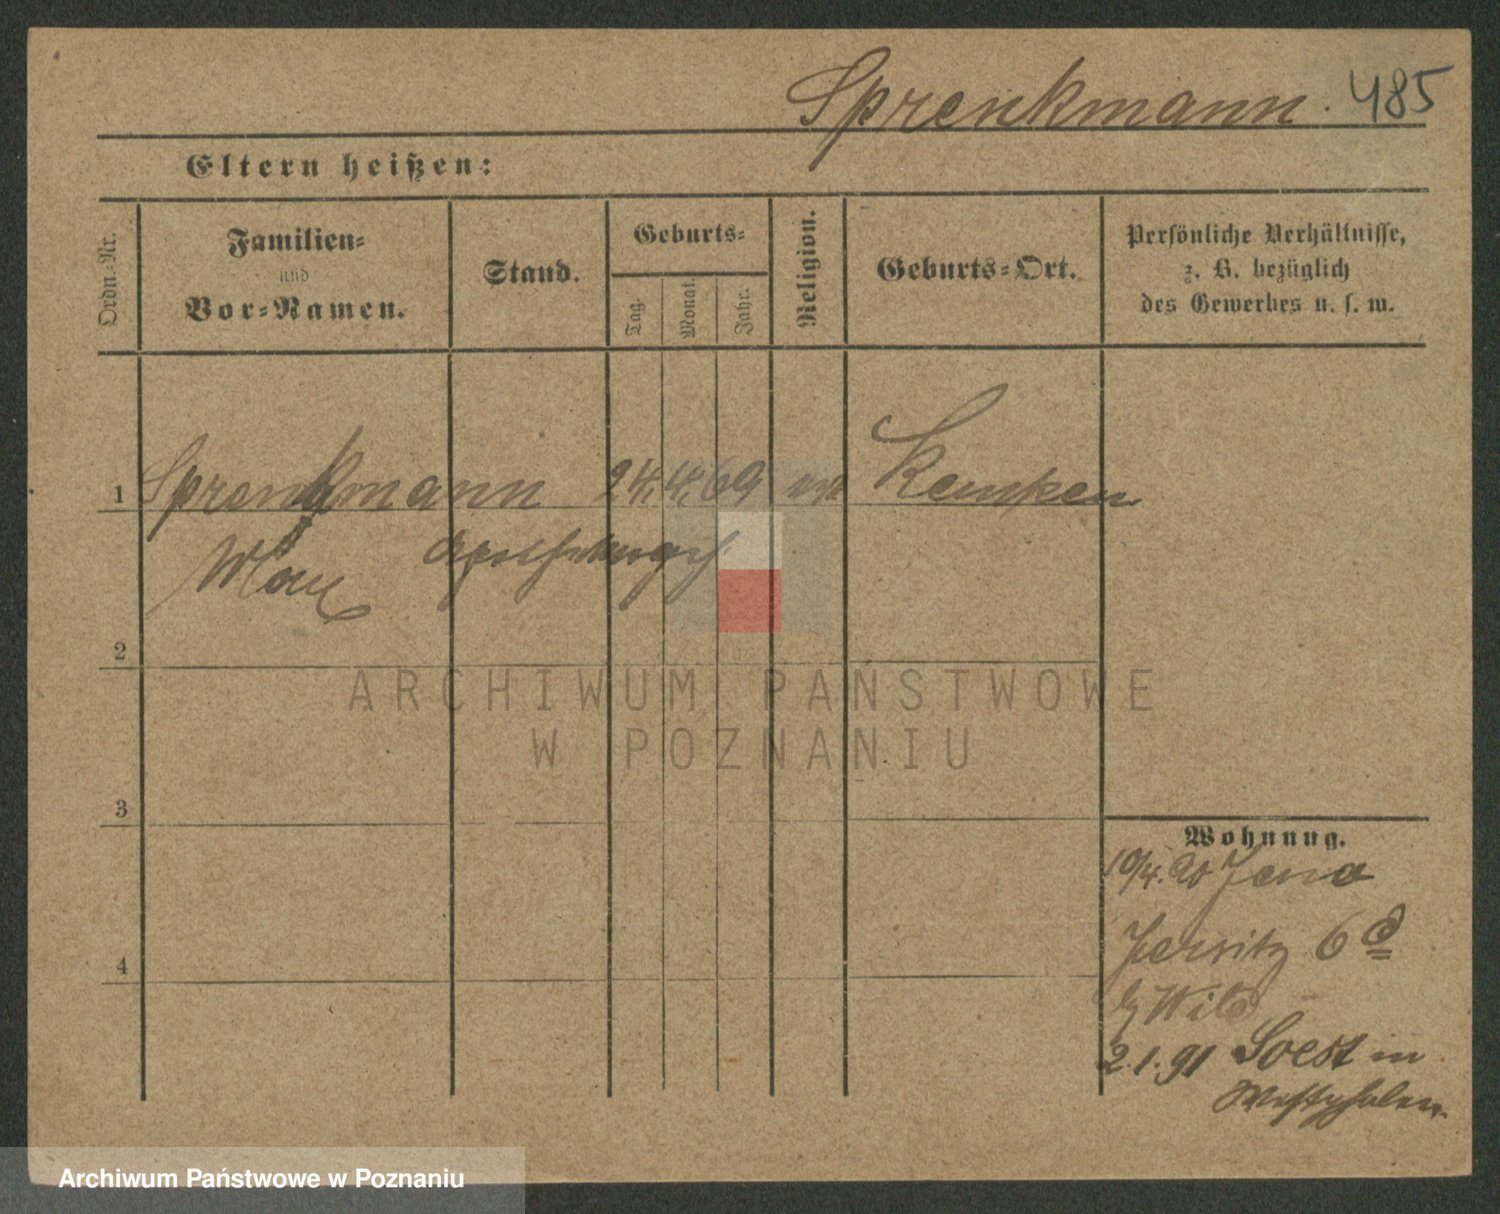 Sprenkmann. 485
Eltern heißen:
Ordn.-Nr.
Familien-
und
Vor-Namen.
Stand.
Geburts-
Tag.
Monat.
Jahr.
Religion.
Geburts-Ort.
Persönliche Verhältnisse,
z. B. bezüglich
des Gewerbes u. s. w.
1 Sprenkmann 24. 4. 69
Max
2
ARCHIWUM PAŃSTWOWE
W POZNANIU
3
Wohnung.
10/4. 90 Jena
Jersitz 6 d
2.1.91 Soest in
Westphalen.
4
Archiwum Państwowe w Poznaniu